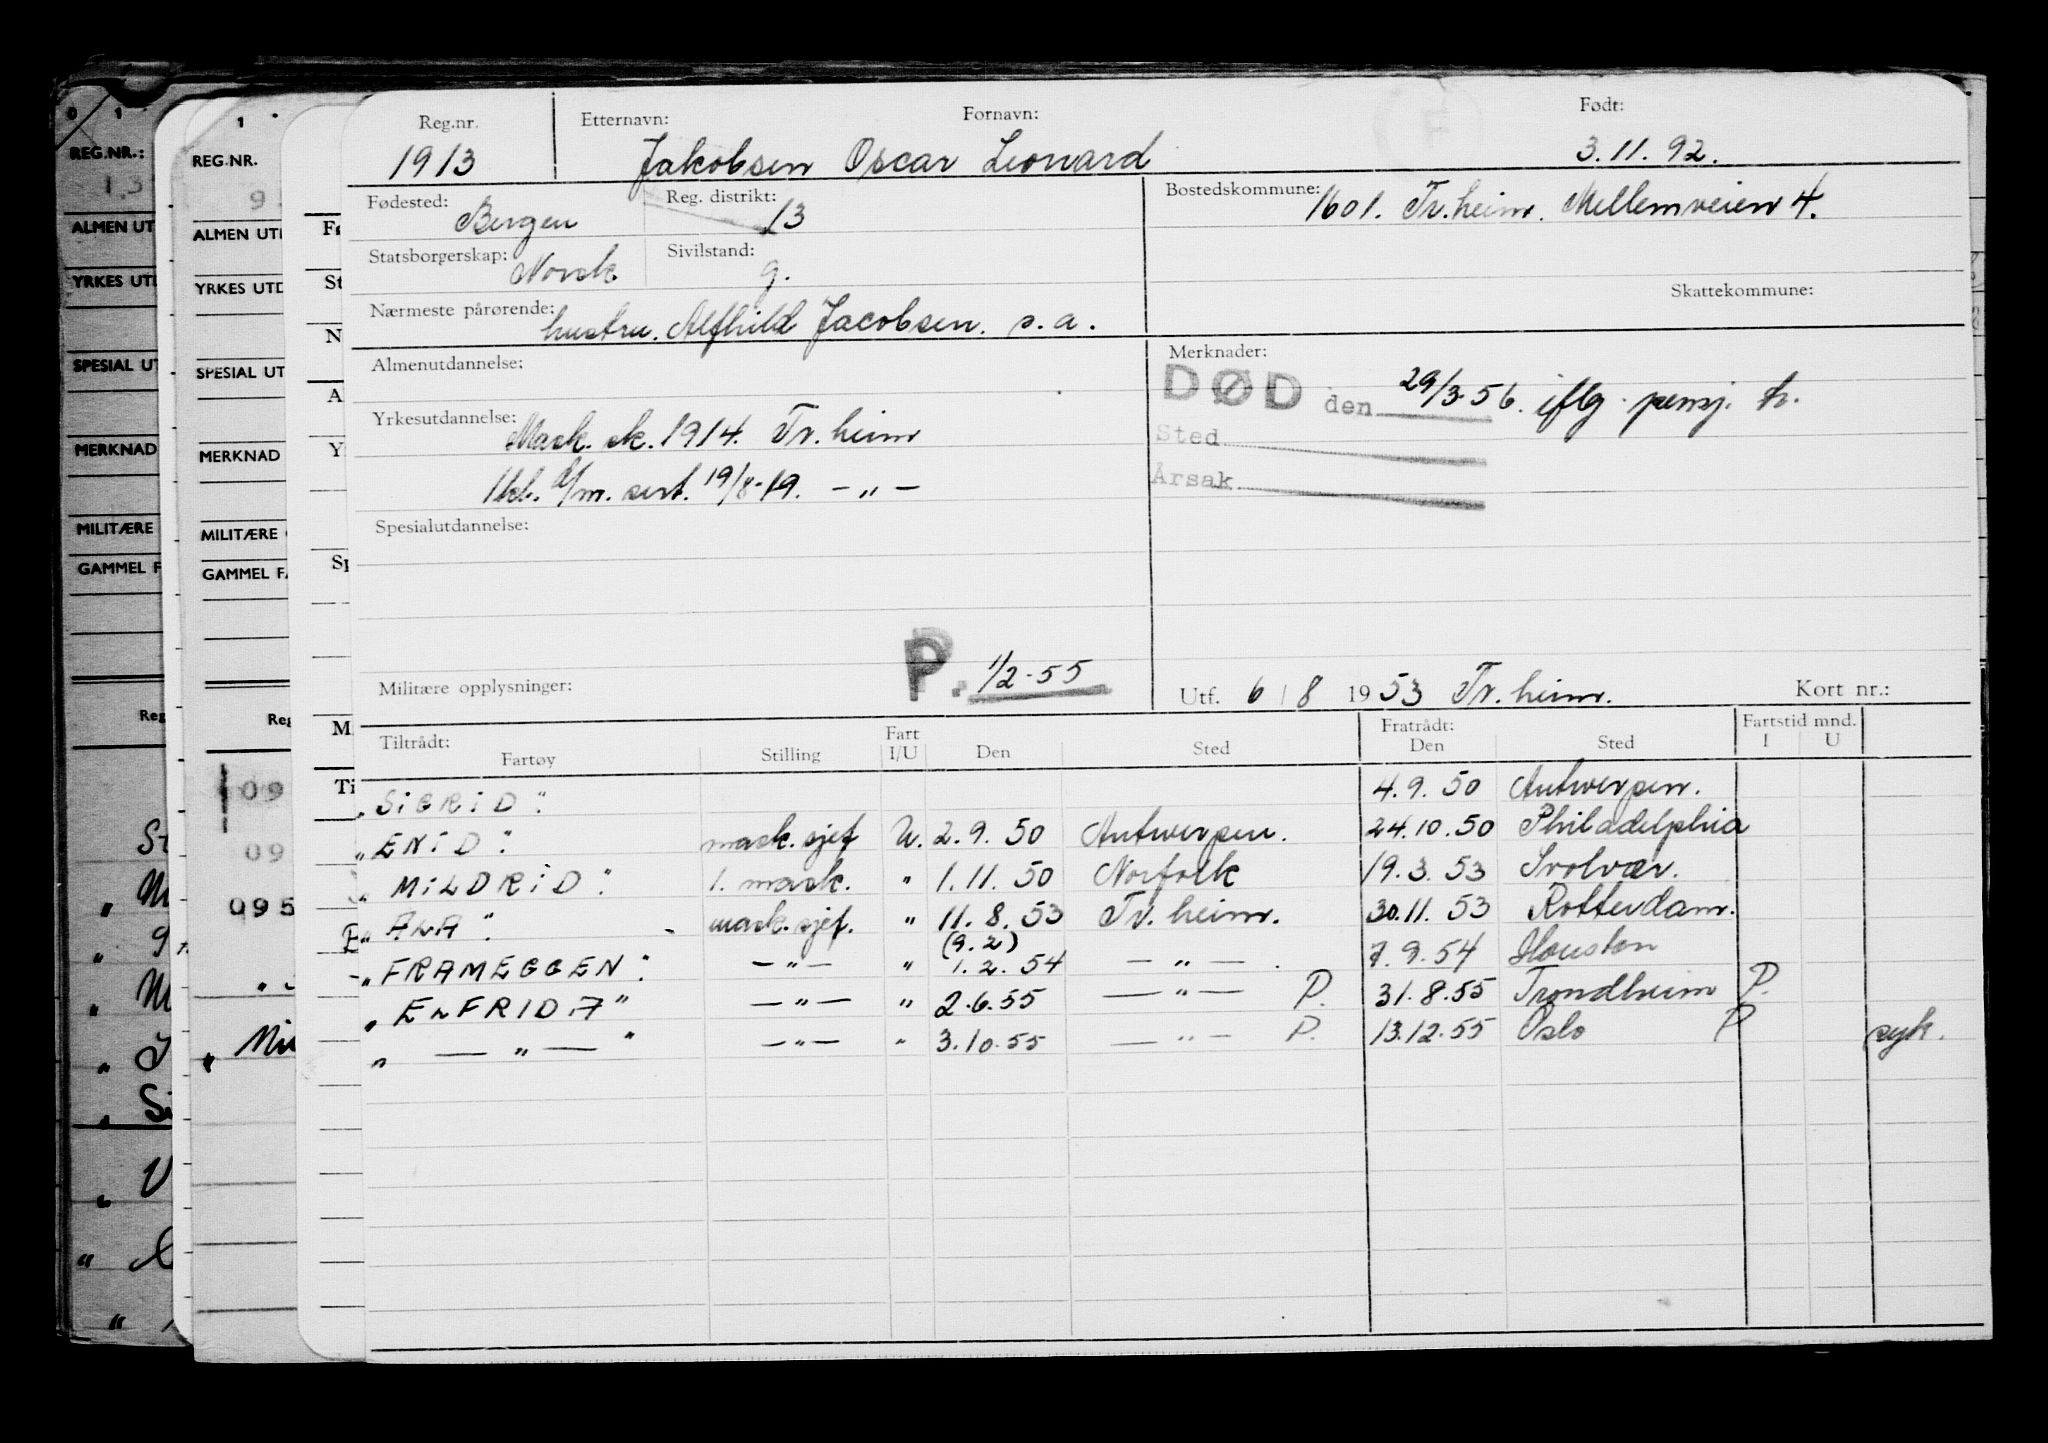 Reg.nr. Etternavn: Fornavn: Født:
1913 Jakobsen Oscar Leonard 3.11.92.
Fødested: Bergen Reg. distrikt: 13 Bostedskommune: 1601. Tr.heim. Mellemveien 4.
Statsborgerskap: Norsk Sivilstand: g.
Skattekommune:
Nærmeste pårørende: hustru. Alfhild Jacobsen. s.a.
Almenutdannelse: Merknader:
DØD den 29/3-56. iflg. pensj. tr.
Yrkesutdannelse: Mask. sk. 1914. Tr.heim Sted
1kl. d/m. sert. 19/8-19. — " — Årsak
Spesialutdannelse:
P. 1/2-55
Militære opplysninger: Utf. 6/8 1953 Tr.heim. Kort nr.:
Tiltrådt: Fratrådt: Fartstid mnd.
Fartøy Stilling Fart I/U Den Sted Den Sted I U
"SIGRID" 4.9.50 Antwerpen.
"ENID" mask.sjef U. 2.9.50 Antwerpen. 24.10.50 Philadelphia
"MILDRID" 1. mask. " 1.11.50 Norfolk 19.3.53 Svolvær.
"ALA" mask.sjef. " 11.8.53 Tr.heim. 30.11.53 Rotterdam.
(9.2)
"FRAMEGGEN" —"— " 1.2.54 —"— . 7.9.54 Houston
"ELFRIDA" —"— " 2.6.55 —"— P. 31.8.55 Trondheim P.
" — " — " —"— " 3.10.55 —"— P. 13.12.55 Oslo P syk.
0 1
REG.NR.:
ALMEN UT
YRKES UT
SPESIAL UT
MERKNAD
MILITÆRE
GAMMEL F
Reg
1
REG.NR.
9
ALMEN UTD
YRKES UTD
SPESIAL UT
MERKNAD
MILITÆRE
GAMMEL FA
Reg
09
09
095